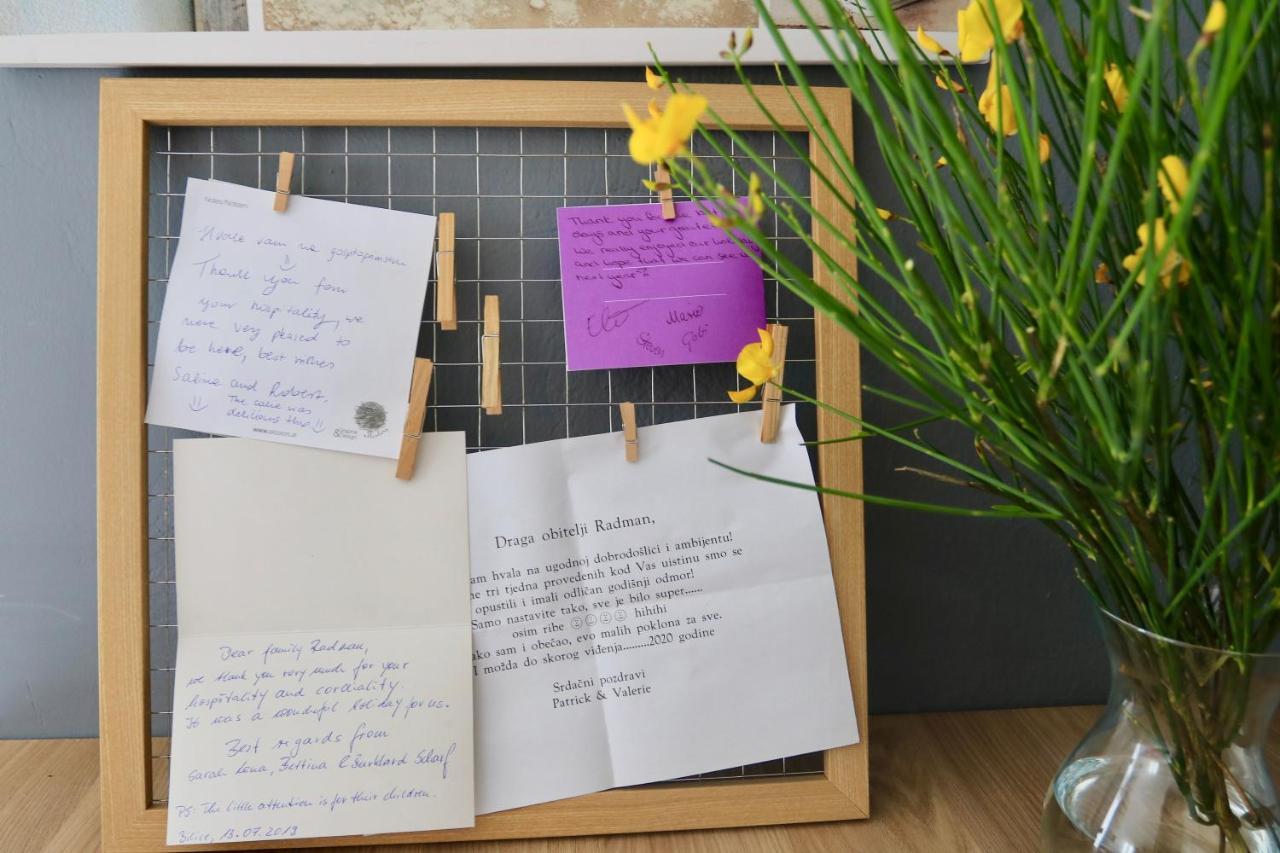 Hvala vam na gostoprimstvu
Thank you for
your hospitality, we
were very pleased to
be here, best wishes
Sabina and Robert.
The cake was
delicious
Thank you for the
days and your
we really enjoyed our
and hope that we can see
next year?
Mario
Steven Gabi
Draga obitelji Radman,
am hvala na ugodnoj dobrodošlici i ambijentu!
ne tri tjedna provedenih kod Vas uistinu smo se
opustili i imali odličan godišnji odmor!
Samo nastavite tako, sve je bilo super......
osim ribe ☺☺☺☺ hihihi
ako sam i obečao, evo malih poklona za sve.
I možda do skorog viđenja.........2020 godine
Srdačni pozdravi
Patrick & Valerie
Dear family Radman,
we thank you very much for your
hospitality and cordiality.
It was a wonderful holiday for us.
Best regards from
Sarah Lena, Bettina & Burkhard Scharf
PS: The little attention is for their children.
Bilice, 13.07.2019